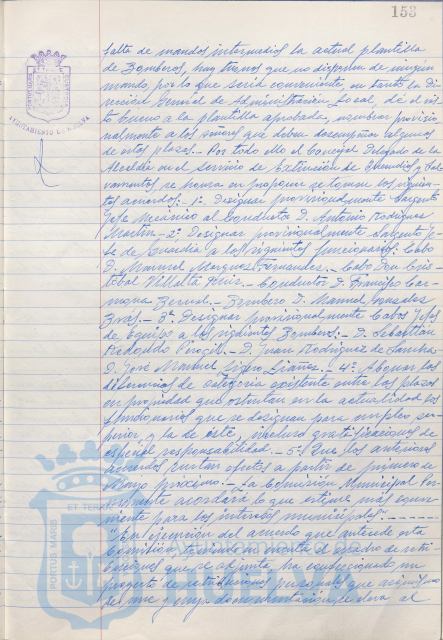 153
falta de mandos intermedios la actual plantilla
de Bomberos, hay turnos que no disponen de ningún
mando, por lo que sería conveniente, en tanto la Di-
rección General de Administración Local, dé el vis-
to bueno a la plantilla aprobada, nombrar provisio-
nalmente a los señores que deban desempeñar algunas
de estas plazas.- Por todo ello el Concejal Delegado de la
Alcaldía en el Servicio de Extinción de Incendios y Sal-
vamentos, se honra en proponer se tomen los siguien-
tes acuerdos:- 1º. Designar provisionalmente Sargento
Jefe Mecánico al Conductor D. Antonio Rodríguez
Martín.- 2º. Designar provisionalmente Sargento Je-
fe de Guardia a los siguientes funcionarios: Cabo
D. Manuel Márquez Fernández.- Cabo Don Cris-
tóbal Villalta Ruiz.- Conductor D. Francisco Car-
mona Bernal.- Bombero D. Manuel González
Bras.- 3º. Designar provisionalmente Cabos Jefes
de Equipo a los siguientes Bomberos:- D. Sebastián
Redondo.- D. Juan Rodríguez de
D. José Manuel.- 4º. Abonar las
diferencias de categoría existente entre las plazas
en propiedad que ostentan en la actualidad los
funcionarios que se designan para empleo su-
perior, y la de éste, incluso gratificaciones de
especial responsabilidad.- 5º. Que los anteriores
acuerdos surtan efectos a partir de primero de
Mayo próximo.- La Comisión Municipal Per-
manente acordará lo que estime más conve-
niente para los intereses municipales".-
"En ejecución del acuerdo que antecede esta
Comisión, teniendo en cuenta el cuadro de retri-
buciones que se adjunta, ha confeccionado un
proyecto de retribuciones personales que
se une y cuya documentación se eleva al
AYUNTAMIENTO DE HUELVA
PORTUS MARIS
ET TERRAE